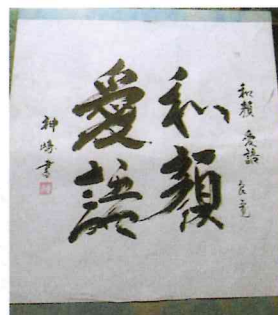 和顔 愛語 良寛
和顔
愛語
神峰書